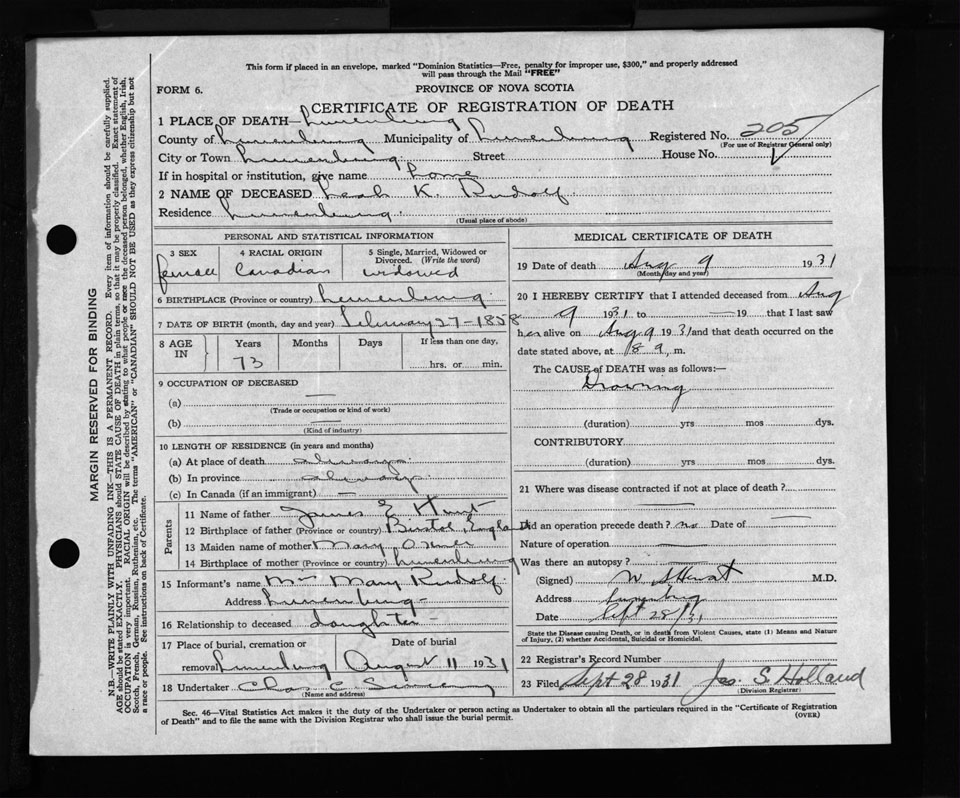 This form if placed in an envelope, marked "Dominion Statistics—Free, penalty for improper use, $300," and properly addressed
will pass through the Mail "FREE"
FORM 6.
PROVINCE OF NOVA SCOTIA
CERTIFICATE OF REGISTRATION OF DEATH
1 PLACE OF DEATH— Lunenburg
County of Lunenburg Municipality of Lunenburg Registered No. 205
(For use of Registrar General only)
City or Town Lunenburg. Street House No.
If in hospital or institution, give name
2 NAME OF DECEASED Leah K. Rudolf
Residence Lunenburg.
(Usual place of abode)
PERSONAL AND STATISTICAL INFORMATION
3 SEX 4 RACIAL ORIGIN 5 Single, Married, Widowed or
Divorced. (Write the word)
female Canadian widowed
6 BIRTHPLACE (Province or country) Lunenburg.
7 DATE OF BIRTH (month, day and year) February 27-1858
8 AGE IN Years Months Days If less than one day,
73 hrs. or min.
9 OCCUPATION OF DECEASED
(a) —
(Trade or occupation or kind of work)
(b) —
(Kind of industry)
10 LENGTH OF RESIDENCE (in years and months)
(a) At place of death always.
(b) In province always.
(c) In Canada (if an immigrant) —
Parents
11 Name of father James E Hunt
12 Birthplace of father (Province or country) Bristol, England
13 Maiden name of mother Mary Oxner
14 Birthplace of mother (Province or country) Lunenburg
15 Informant's name Mrs Mary Rudolf.
Address Lunenburg-
16 Relationship to deceased daughter-
17 Place of burial, cremation or removal Date of burial
Lunenburg August 11 1931
18 Undertaker Chas C.
(Name and address)
MEDICAL CERTIFICATE OF DEATH
19 Date of death Aug 9 1931
(Month, day and year)
20 I HEREBY CERTIFY that I attended deceased from Aug
9 1931 to — 19 that I last saw
her alive on Aug 9 1931 and that death occurred on
date stated above, at m.
The CAUSE of DEATH was as follows:—
Drowning
(duration) yrs mos dys.
CONTRIBUTORY
(duration) yrs mos dys.
21 Where was disease contracted if not at place of death? —
Did an operation precede death? no Date of —
Nature of operation —
Was there an autopsy? —
(Signed) M.D.
Address Lunenburg
Date Sept 28/31
State the Disease causing Death, or in death from Violent Causes, state (1) Means and Nature
of Injury, (2) whether Accidental, Suicidal or Homicidal.
22 Registrar's Record Number
23 Filed Sept 28 1931 Jas. S. Holland
(Division Registrar)
Sec. 46—Vital Statistics Act makes it the duty of the Undertaker or person acting as Undertaker to obtain all the particulars required in the "Certificate of Registration
of Death" and to file the same with the Division Registrar who shall issue the burial permit.
(OVER)
MARGIN RESERVED FOR BINDING
N.B.—WRITE PLAINLY WITH UNFADING INK—THIS IS A PERMANENT RECORD. Every item of information should be carefully supplied.
AGE should be stated EXACTLY. PHYSICIANS should STATE CAUSE OF DEATH in plain terms, so that it may be properly classified. Exact statement of
OCCUPATION is very important. RACIAL ORIGIN will be described by stating to what people or race the deceased person belonged, whether English, Irish,
Scotch, French, German, Russian, Ruthenian, etc. The terms "AMERICAN" or "CANADIAN" SHOULD NOT BE USED as they express citizenship but not
a race or people. See instructions on back of Certificate.